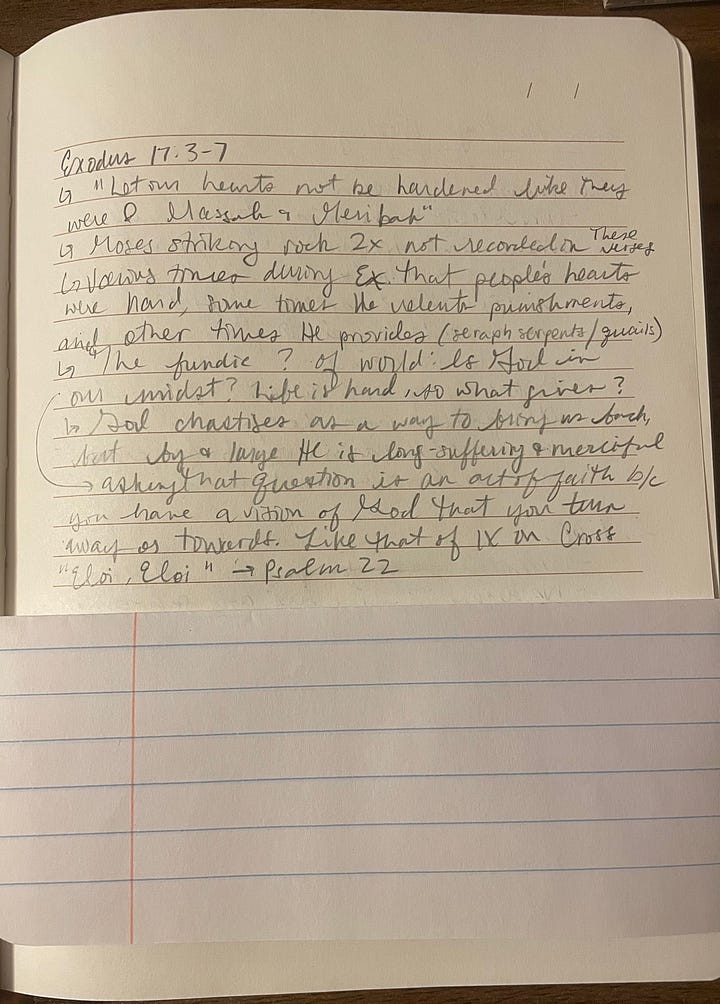 Exodus 17:3-7
↳ "Let our hearts not be hardened like they
were @ Massah & Meribah"
↳ Moses striking rock 2x not recorded in these verses
↳ Various times during Ex. that people's hearts
were hard, some times He punishments,
and other times He provides (seraph serpents/quails)
↳ "The ? of world: Is God in
our midst? Life is hard, so what gives?
↳ God chastises as a way to bring us back,
but by & large He is long-suffering & merciful
→ asking that question is an act of faith b/c
you have a vision of God that you turn
away or towards. Like that of on Cross
"Eloi, Eloi" → Psalm 22